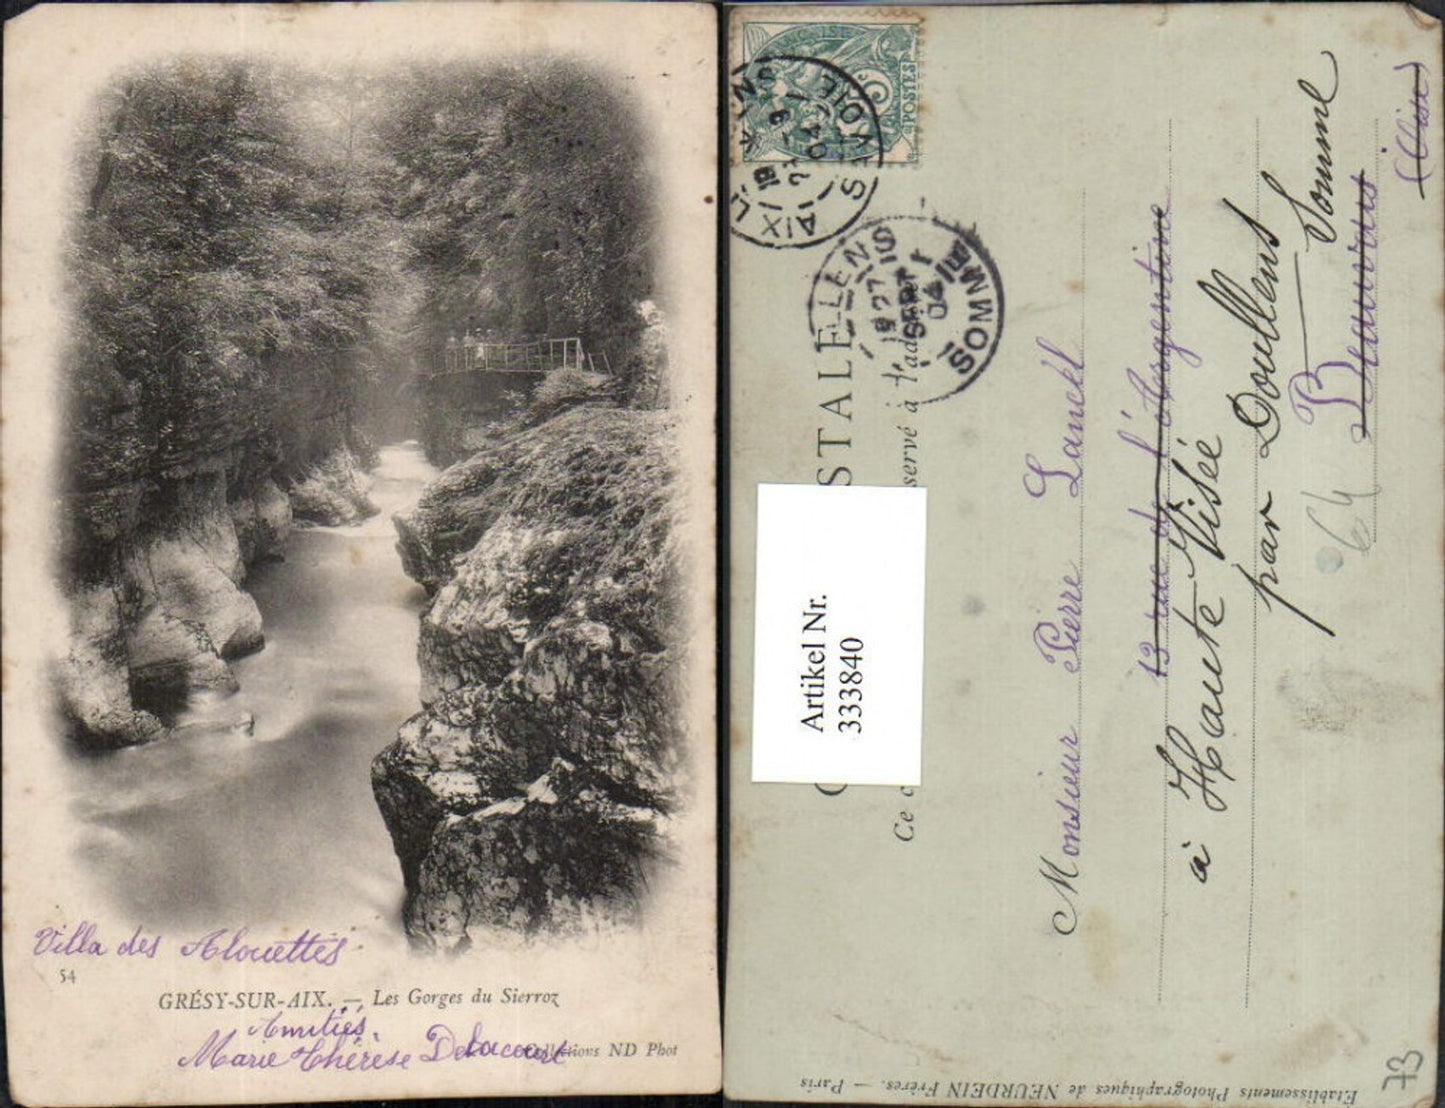 Villa des Alouettes
54
GRÉSY-SUR-AIX. — Les Gorges du Sierroz
Amitiés.
Marie Thérèse Delacourt
Collections ND Phot
POSTES
AIX
SAVOIE
04
SOMME
19 27
SEPT
04
STALE
Ce
servé à l'ad
Artikel Nr.
333840
Monsieur Pierre Lanckl
13 rue de l'Argentine
à Haute Visée
par Doullens
Somme
Beauvais
(Oise)
64
73
Etablissements Photographiques de NEURDEIN Frères. — Paris